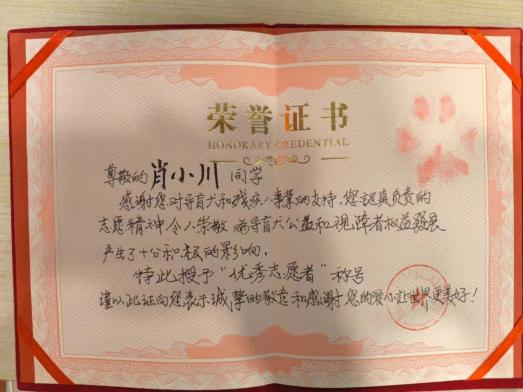 荣誉证书
HONORARY CREDENTIAL
尊敬的肖小川同学
感谢您对导盲犬和残疾人事业的支持,您认真负责的
志愿精神令人崇敬 为导盲犬公益和视障者权益发展
产生了十分积极的影响,
特此授予“优秀志愿者”称号
谨以此证向您表示诚挚的敬意和感谢 您的爱心让世界更美好!